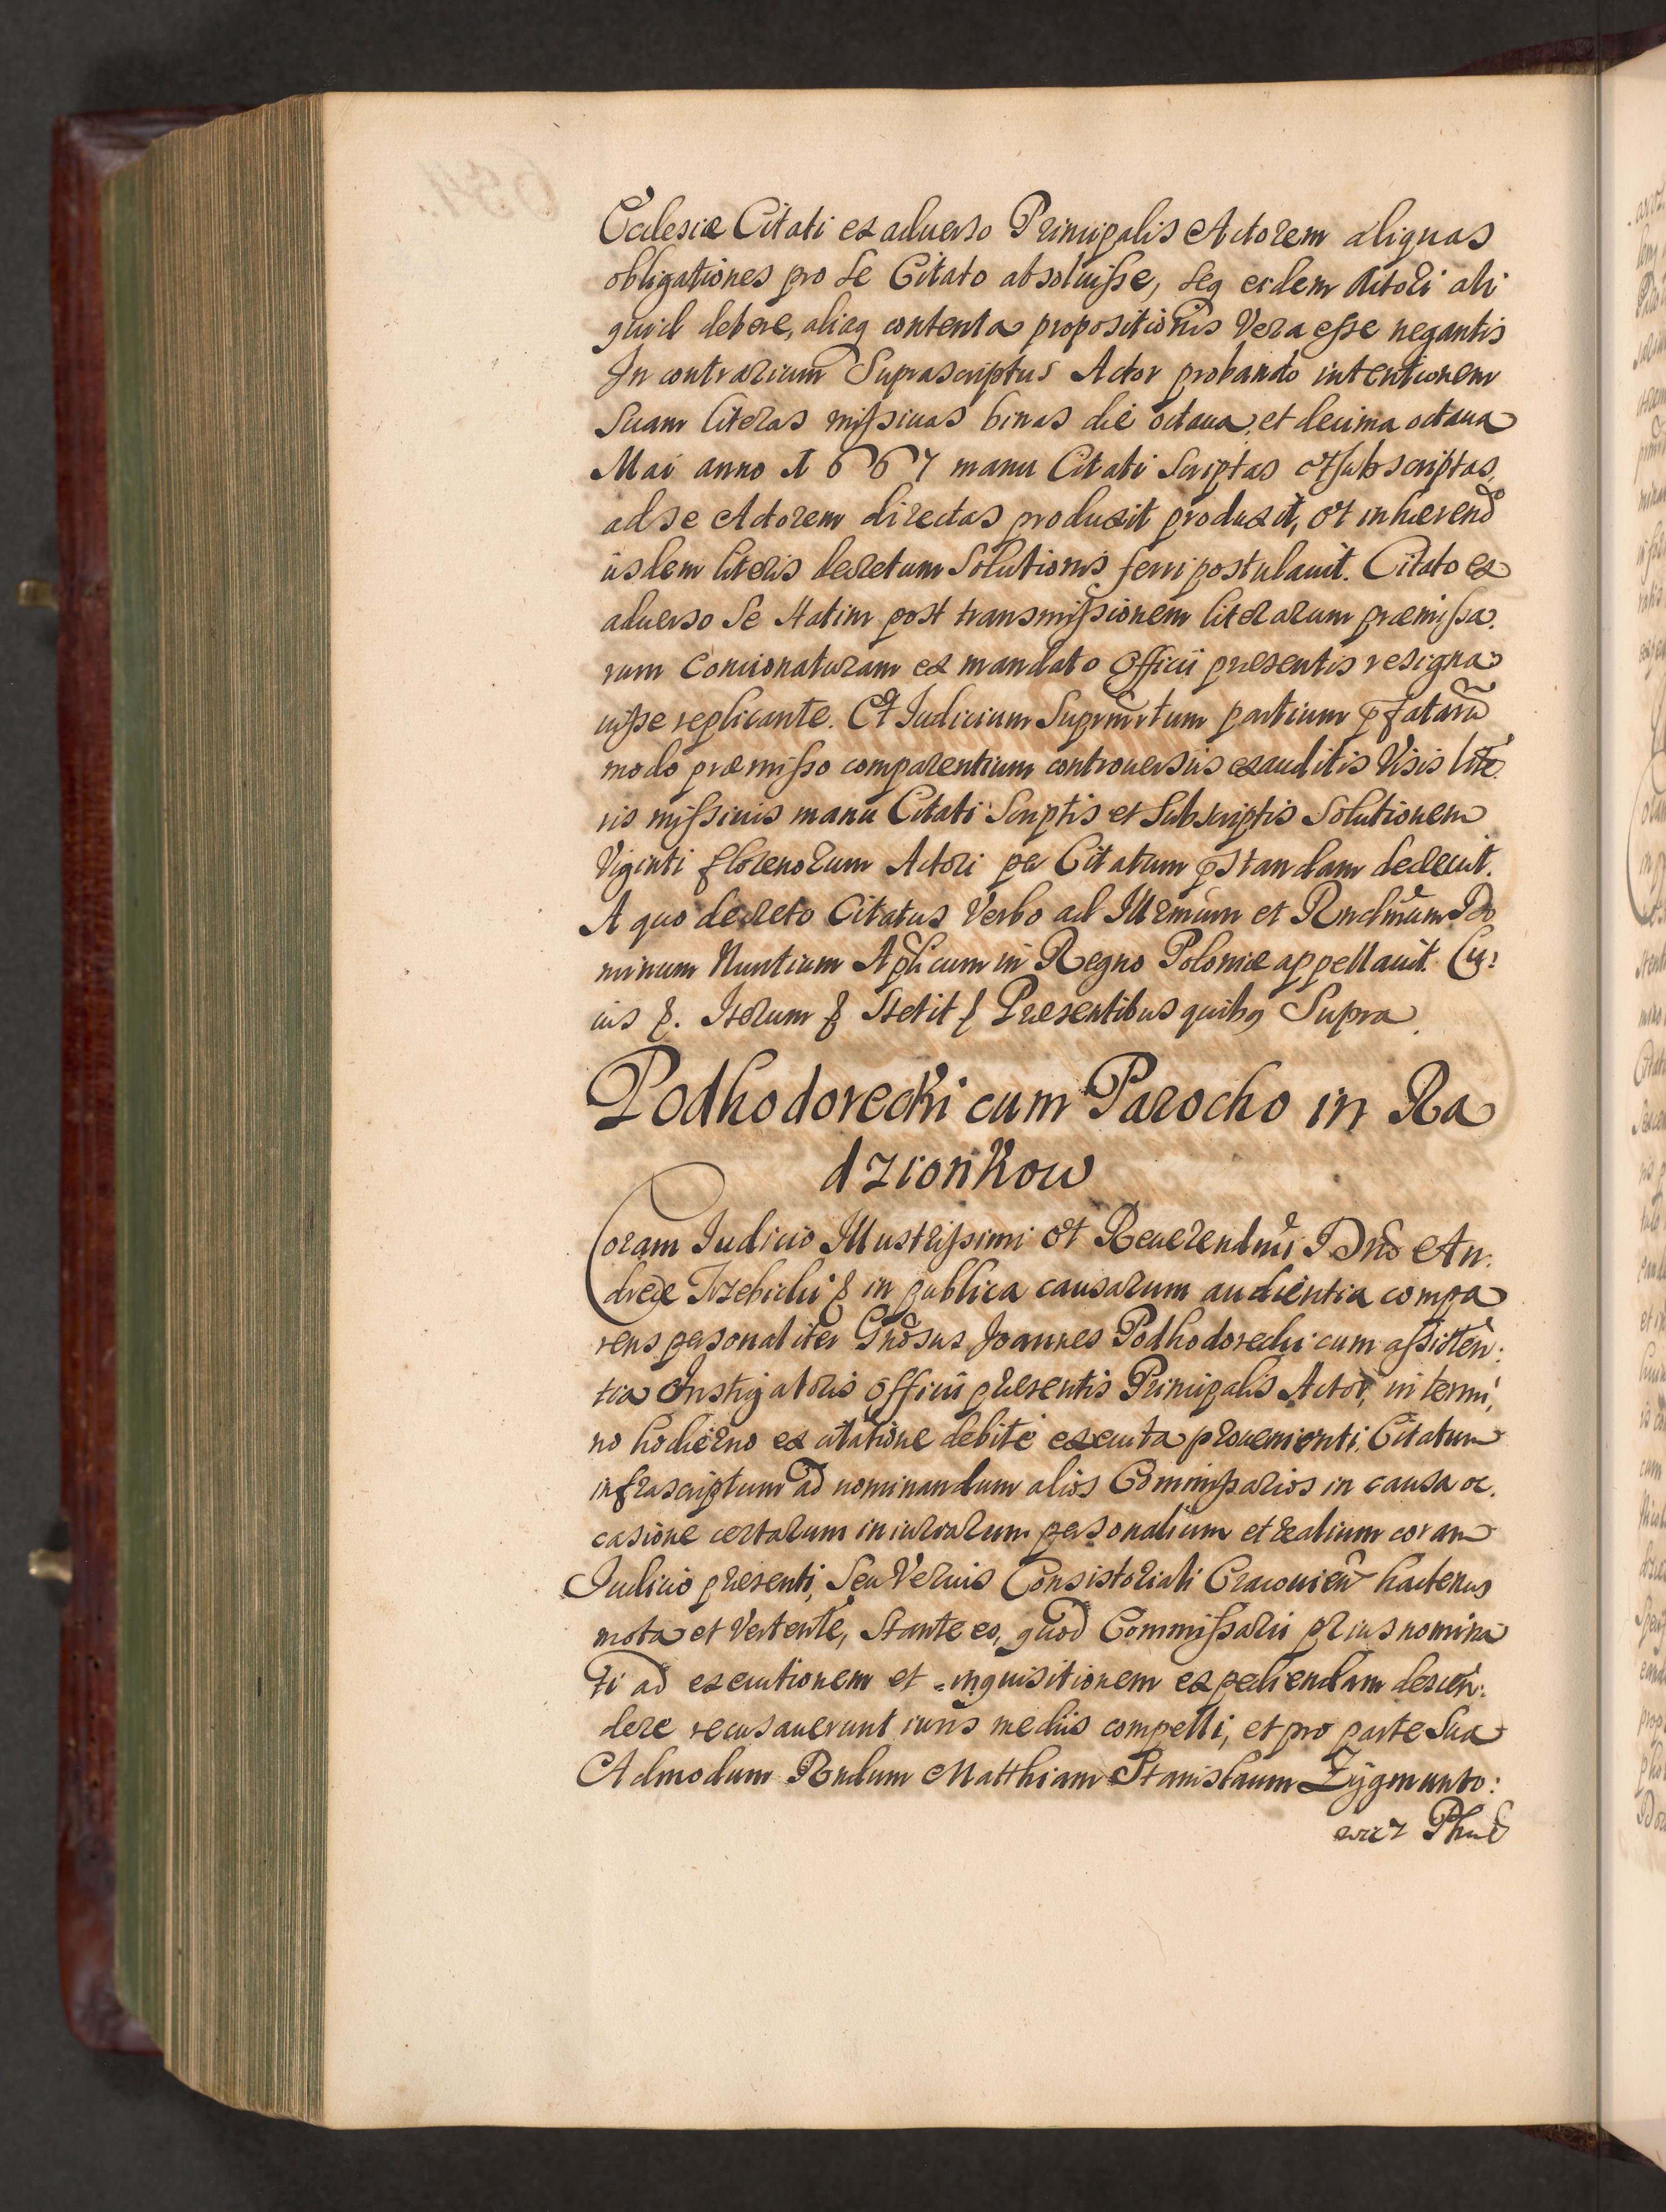 Ecclesiæ Citati ex aduerso Principalis Actorem aliquas
obligationes pro se Citato absoluisse, seq eidem Actori ali
quid debere, aliaq contenta propositionis Vera esse negantis
In contrarium Suprascriptus Actor probando intentionem
Suam literas missiuas binas die octaua et decima octaua
Mai anno 1667 manu Citati Scriptas et subscriptas,
ad se Actorem directas produxit produxit, et inhærend
iisdem literis decretum Solutionis ferri postulauit. Citato ex
aduerso Se statim post transmissionem literarum præmissa.
rum Concionaturam ex mandato Officii præsentis resigna
uisse replicante. Et Iudicium partium pfatarũ
modo præmisso comparentium controuersiis exauditis Visis lite
ris missiuis manu Citati Scriptis et Subscriptis Solutionem
Viginti florenorum Actori per Citatum pstandam decreuit.
A quo decreto Citatus Verbo ad Illrmum et Rndmum Do
minum Nuntium Aplicum in Regno Poloniæ appellauit. Cu:
ius &. Iterum & Stetit & Præsentibus quibq Supra.
Podhodorecki cum Parocho in Ra
dzionkow
Coram Iudicio Illustrissimi et Reuerendmi D Dnõ An:
dreæ Trzebicki & in publica causarum audientia compa
rens personaliter Gnõsus Joannes Podhodorecki cum assisten:
tia Instigatoris Officii præsentis Principalis Actor, in termi,
no hodierno ex citatione debite executa proueniente, Citatum
infrascriptum ad nominandum alios Commissarios in causa oc.
casione certarum iniuriarum personalium et realium coram
Iudicio præsenti, Seu Verius Consistoriali Cracouieñ hactenus
mota et Vertente, Stante eo, quod Commissarii prius nomina
ti ad executionem et inquisitionem expediendam descen:
dere recusauerunt iuris mediis compelli, et pro parte Sua
Admodum Rndum Matthiam Stanislaum Zygmunto:
wicz